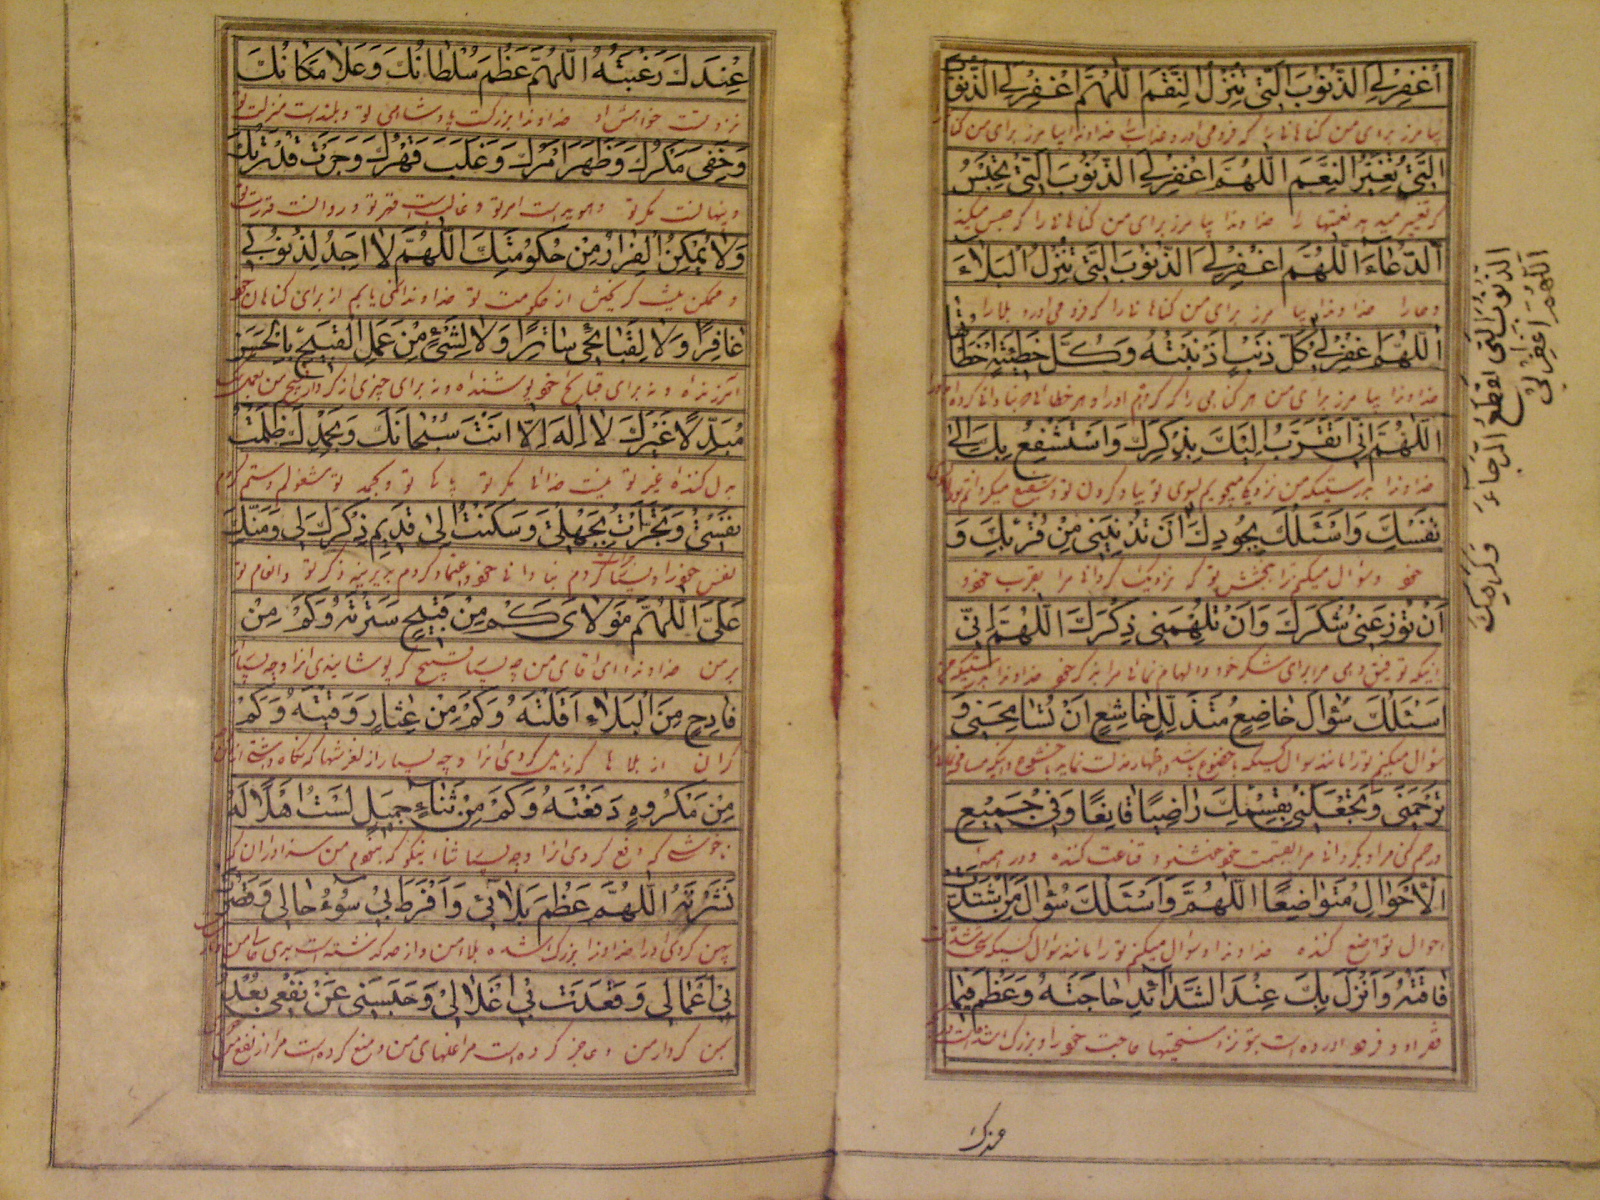 اغْفِرْ لِيَ الذُّنُوبَ الَّتِي تُنْزِلُ النِّقَمَ اللّٰهُمَّ اغْفِرْ لِيَ الذُّنُوبَ
بیامرز برای من کناهانیرا که فرو می اورد عذاب خداوندا بیامرز برای من کنا
الَّتِي تُغَيِّرُ النِّعَمَ اللّٰهُمَّ اغْفِرْ لِيَ الذُّنُوبَ الَّتِي تَحْبِسُ
که تغییر میدهد نعمتها را خداوندا بیامرز برای من کناهانرا که حبس میکند
الدُّعَاءَ اللّٰهُمَّ اغْفِرْ لِيَ الذُّنُوبَ الَّتِي تُنْزِلُ الْبَلَاءَ
دعارا خداوندا بیامرز برای من کناهانرا که فرو می اورد بلارا
اللّٰهُمَّ اغْفِرْ لِي كُلَّ ذَنْبٍ اَذْنَبْتُهُ وَكُلَّ خَطِيئَةٍ اَخْطَأْتُهَا
خداوندا بیامرز برای من هر کناهی را که کردم اورا و هر خطا
اللّٰهُمَّ اِنِّي اَتَقَرَّبُ اِلَيْكَ بِذِكْرِكَ وَاَسْتَشْفِعُ بِكَ اِلٰى
خداوندا بدرستیکه من نزدیکی میجویم بسوی تو بیاد کردن تو و شفیع میکردانم تورا
نَفْسِكَ وَاَسْئَلُكَ بِجُودِكَ اَنْ تُدْنِيَنِي مِنْ قُرْبِكَ وَ
خود و سؤال میکنم ترا ببخشش تو که نزدیک کردانی مرا بقرب خود
اَنْ تُوزِعَنِي شُكْرَكَ وَاَنْ تُلْهِمَنِي ذِكْرَكَ اَللّٰهُمَّ اِنِّي
اینکه توفیق دهی مرا برای شکر خود و الهام نمائی مرا بذکر خود خداوندا بدرستیکه من
اَسْئَلُكَ سُؤَالَ خَاضِعٍ مُتَذَلِّلٍ خَاشِعٍ اَنْ تُسَامِحَنِي وَ
سؤال میکنم تورا مانند سوال کسیکه با خضوع باشد و اظهار مذلت نماید
تَرْحَمَنِي وَتَجْعَلَنِي بِقِسْمِكَ رَاضِيًا قَانِعًا وَفِي جَمِيعِ
و رحم کنی مرا و بکردانی مرا بقسمت خود خشنود و قناعت کننده و در همه
الْاَحْوَالِ مُتَوَاضِعًا اَللّٰهُمَّ وَاَسْئَلُكَ سُؤَالَ مَنِ اشْتَدَّتْ
احوال تواضع کننده خداوندا و سؤال میکنم تورا مانند سؤال کسیکه
فَاقَتُهُ وَاَنْزَلَ بِكَ عِنْدَ الشَّدَائِدِ حَاجَتَهُ وَعَظُمَ فِيمَا
فقر او و فرود اورده است بتو نزد سختیها حاجت خود را و بزرک شده است
اَللّٰهُمَّ اغْفِرْ لِيَ
الذُّنُوبَ الَّتِي تَقْطَعُ الرَّجَاءَ
عندک
عِنْدَكَ رَغْبَتُهُ اَللّٰهُمَّ عَظُمَ سُلْطَانُكَ وَعَلَا مَكَانُكَ
نزد تست خواهش او خداوندا بزرکست پادشاهی تو و بلند است منزلت تو
وَخَفِيَ مَكْرُكَ وَظَهَرَ اَمْرُكَ وَغَلَبَ قَهْرُكَ وَجَرَتْ قُدْرَتُكَ
و پنهانست مکر تو و هویداست امر تو و غالبست قهر تو و روانست قدرت تو
وَلَا يُمْكِنُ الْفِرَارُ مِنْ حُكُومَتِكَ اَللّٰهُمَّ لَا اَجِدُ لِذُنُوبِي
و ممکن نیست کریختن از حکومت تو خداوندا نمی یابم از برای کناهان خود
غَافِرًا وَلَا لِقَبَائِحِي سَاتِرًا وَلَا لِشَيْءٍ مِنْ عَمَلِيَ الْقَبِيحِ بِالْحَسَنِ
امرزنده و نه برای قبایح خود پوشنده و نه برای چیزی از کردار قبیح من
مُبَدِّلًا غَيْرَكَ لَا اِلٰهَ اِلَّا اَنْتَ سُبْحَانَكَ وَبِحَمْدِكَ ظَلَمْتُ
بدل کننده غیر تو نیست خدائی مکر تو پاکی تو و بحمد تو مشغولم و ستم کردم
نَفْسِي وَتَجَرَّأْتُ بِجَهْلِي وَسَكَنْتُ اِلٰى قَدِيمِ ذِكْرِكَ لِي وَمَنِّكَ
نفس خود را و بیباکی کردم بنادانی خود و اعتماد کردم بدیرینه ذکر تو و انعام تو
عَلَيَّ اَللّٰهُمَّ مَوْلَايَ كَمْ مِنْ قَبِيحٍ سَتَرْتَهُ وَكَمْ مِنْ
بر من خداوندا ای اقای من چه بسیار قبیح که پوشانیدی انرا و چه بسیار
فَادِحٍ مِنَ الْبَلَاءِ اَقَلْتَهُ وَكَمْ مِنْ عِثَارٍ وَقَيْتَهُ وَكَمْ
کران از بلاها که زایل کردی انرا و چه بسیار از لغزشها که نکاه داشتی
مِنْ مَكْرُوهٍ دَفَعْتَهُ وَكَمْ مِنْ ثَنَاءٍ جَمِيلٍ لَسْتُ اَهْلًا لَهُ
ناخوشی که دفع کردی انرا و چه بسیار ثناء نیکو که نبودم من سزاوار ان
نَشَرْتَهُ اَللّٰهُمَّ عَظُمَ بَلَائِي وَاَفْرَطَ بِي سُوءُ حَالِي وَقَصُرَتْ
پهن کردی انرا خداوندا بزرک شده بلاء من و از حد کذشته است بدی حال من
بِي اَعْمَالِي وَقَعَدَتْ بِي اَغْلَالِي وَحَبَسَنِي عَنْ نَفْعِي بُعْدُ
بمن کردار من و عاجز کرده است مرا غلهای من و منع کرده است مرا از نفع من